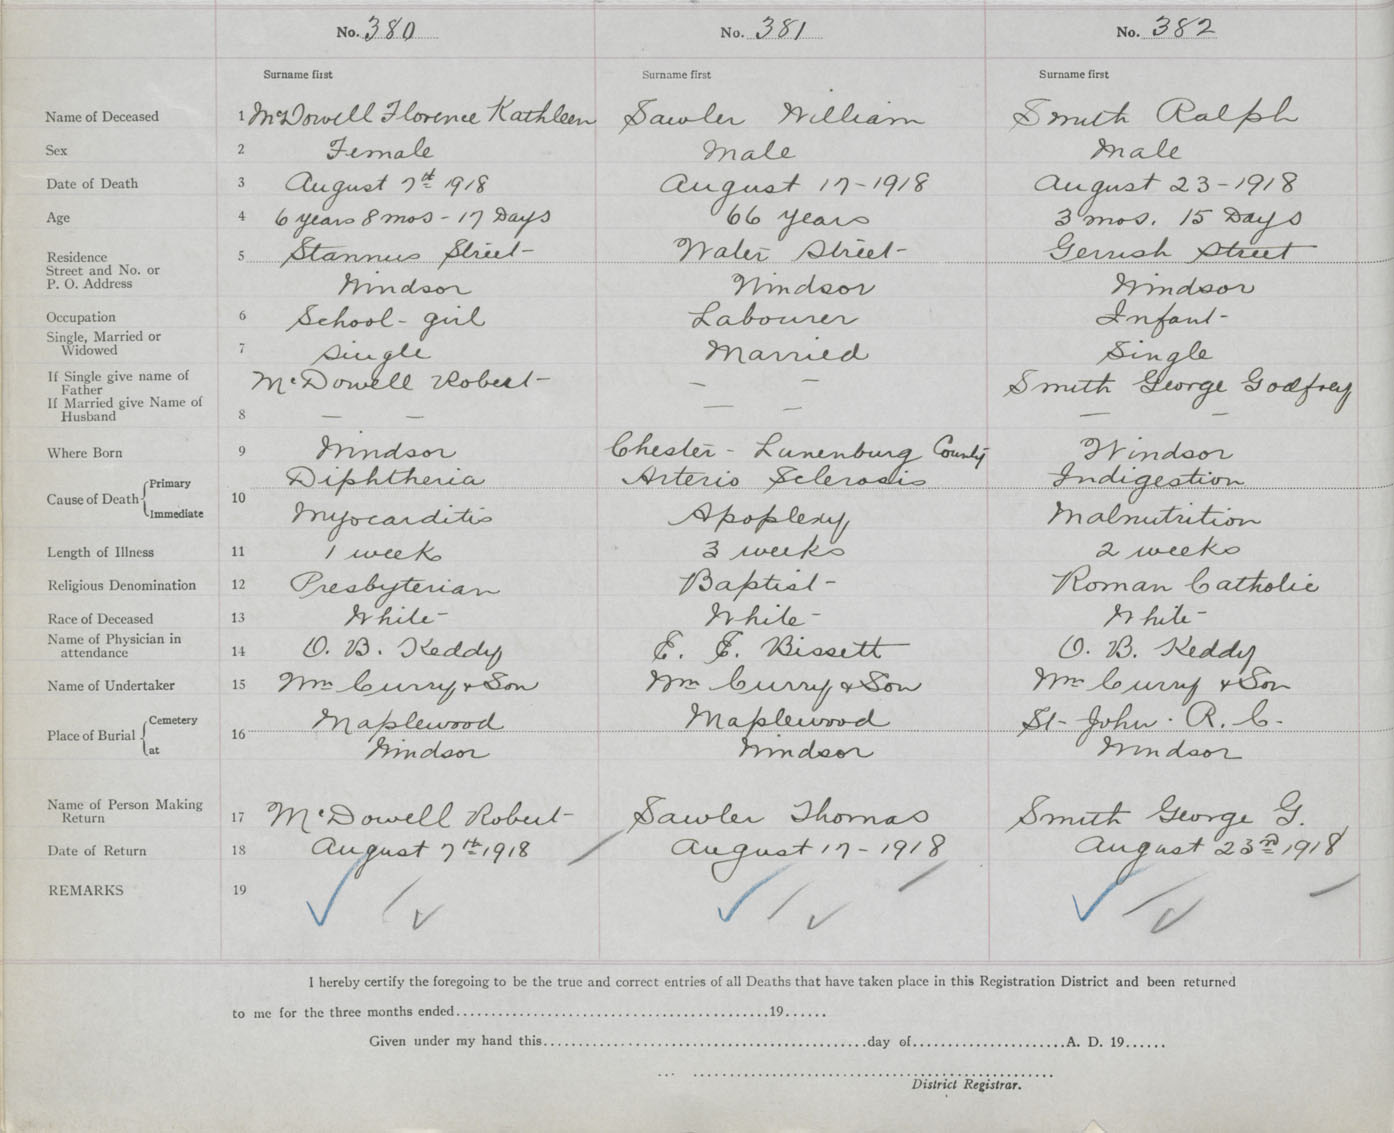 No. 380 No. 381 No. 382
Surname first Surname first Surname first
Name of Deceased 1 McDowell Florence Kathleen Sawler William Smith Ralph
Sex 2 Female Male Male
Date of Death 3 August 7th 1918 August 17-1918 August 23-1918
Age 4 6 years 8 mos - 17 Days 66 years 3 mos. 15 Days
Residence 5 Stannus Street Water Street Gerrish Street
Street and No. or
P. O. Address Windsor Windsor Windsor
Occupation 6 School-girl Labourer Infant
Single, Married or
Widowed 7 Single Married Single
If Single give name of
Father McDowell Robert — — Smith George Godfrey
If Married give Name of
Husband 8 — — — — — —
Where Born 9 Windsor Chester - Lunenburg County Windsor
Cause of Death Primary 10 Diphtheria Arterio Sclerosis Indigestion
Immediate Myocarditis Apoplexy Malnutrition
Length of Illness 11 1 week 3 weeks 2 weeks
Religious Denomination 12 Presbyterian Baptist Roman Catholic
Race of Deceased 13 White White White
Name of Physician in
attendance 14 O. B. Keddy E. E. Bissett O. B. Keddy
Name of Undertaker 15 Wm Curry & Son Wm Curry & Son Wm Curry & Son
Place of Burial Cemetery 16 Maplewood Maplewood St John. R. C.
at Windsor Windsor Windsor
Name of Person Making
Return 17 McDowell Robert Sawler Thomas Smith George G.
Date of Return 18 August 7th 1918 August 17-1918 August 23rd 1918
REMARKS 19
I hereby certify the foregoing to be the true and correct entries of all Deaths that have taken place in this Registration District and been returned
to me for the three months ended............................................19......
Given under my hand this..............................................day of......................A. D. 19......
District Registrar.